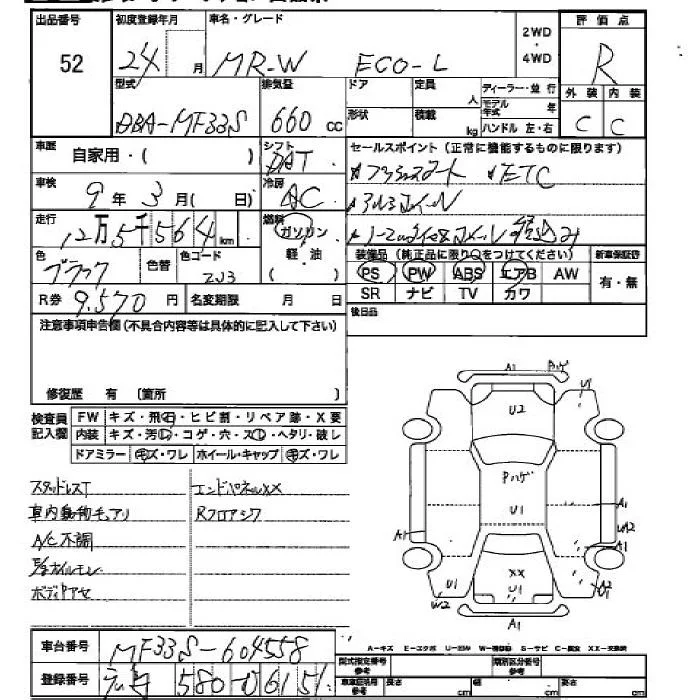 出品番号 初度登録年月 車名・グレード 2WD・4WD 評価点
52 24 月 MR-W ECO-L R
型式 排気量 ドア 定員 人 ディーラー・並行 外装 内装
DBA-MF33S 660 cc 形状 積載 kg モデル年式 年 C C
ハンドル 左・右
車歴 自家用・( ) シフト DAT セールスポイント (正常に機能するものに限ります)
車検 9年 3月( 日) 冷房 AC ETC
走行 12万5千564 km 燃料 ガソリン 軽・油 ( )
色 ブラック 色替 色コード ZJ3 装備品 (純正品に限り○をつけてください) 新車保証書
PS PW ABS エアB AW 有・無
R券 9.570 円 名変期限 月 日 SR ナビ TV カワ
注意事項申告欄 (不具合内容等は具体的に記入して下さい) 後日品
修復歴 有 〔箇所 〕
検査員記入欄 FW キズ・飛石・ヒビ割・リペア跡・X要
内装 キズ・汚レ・コゲ・穴・スレ・ヘタリ・破レ
ドアミラー キズ・ワレ ホイール・キャップ キズ・ワレ
スタッドレスT エンドパネルXX
車内動物毛アリ Rフロアシワ
A/C不調
ボディヤケ
A1 Pハゲ
U1
U2
Pハゲ
U1
A1
A1 U2
A1
XX
U1 U1 A2
W2
A1
A-キズ E-エクボ U-凹ミ W-補修跡 S-サビ C-腐食 XX-交換済
車台番号 MF33S-604558 型式指定番号 参考 類別区分番号 参考
登録番号 580 6151 車庫証明用 参考 長さ cm 幅 cm 高さ cm